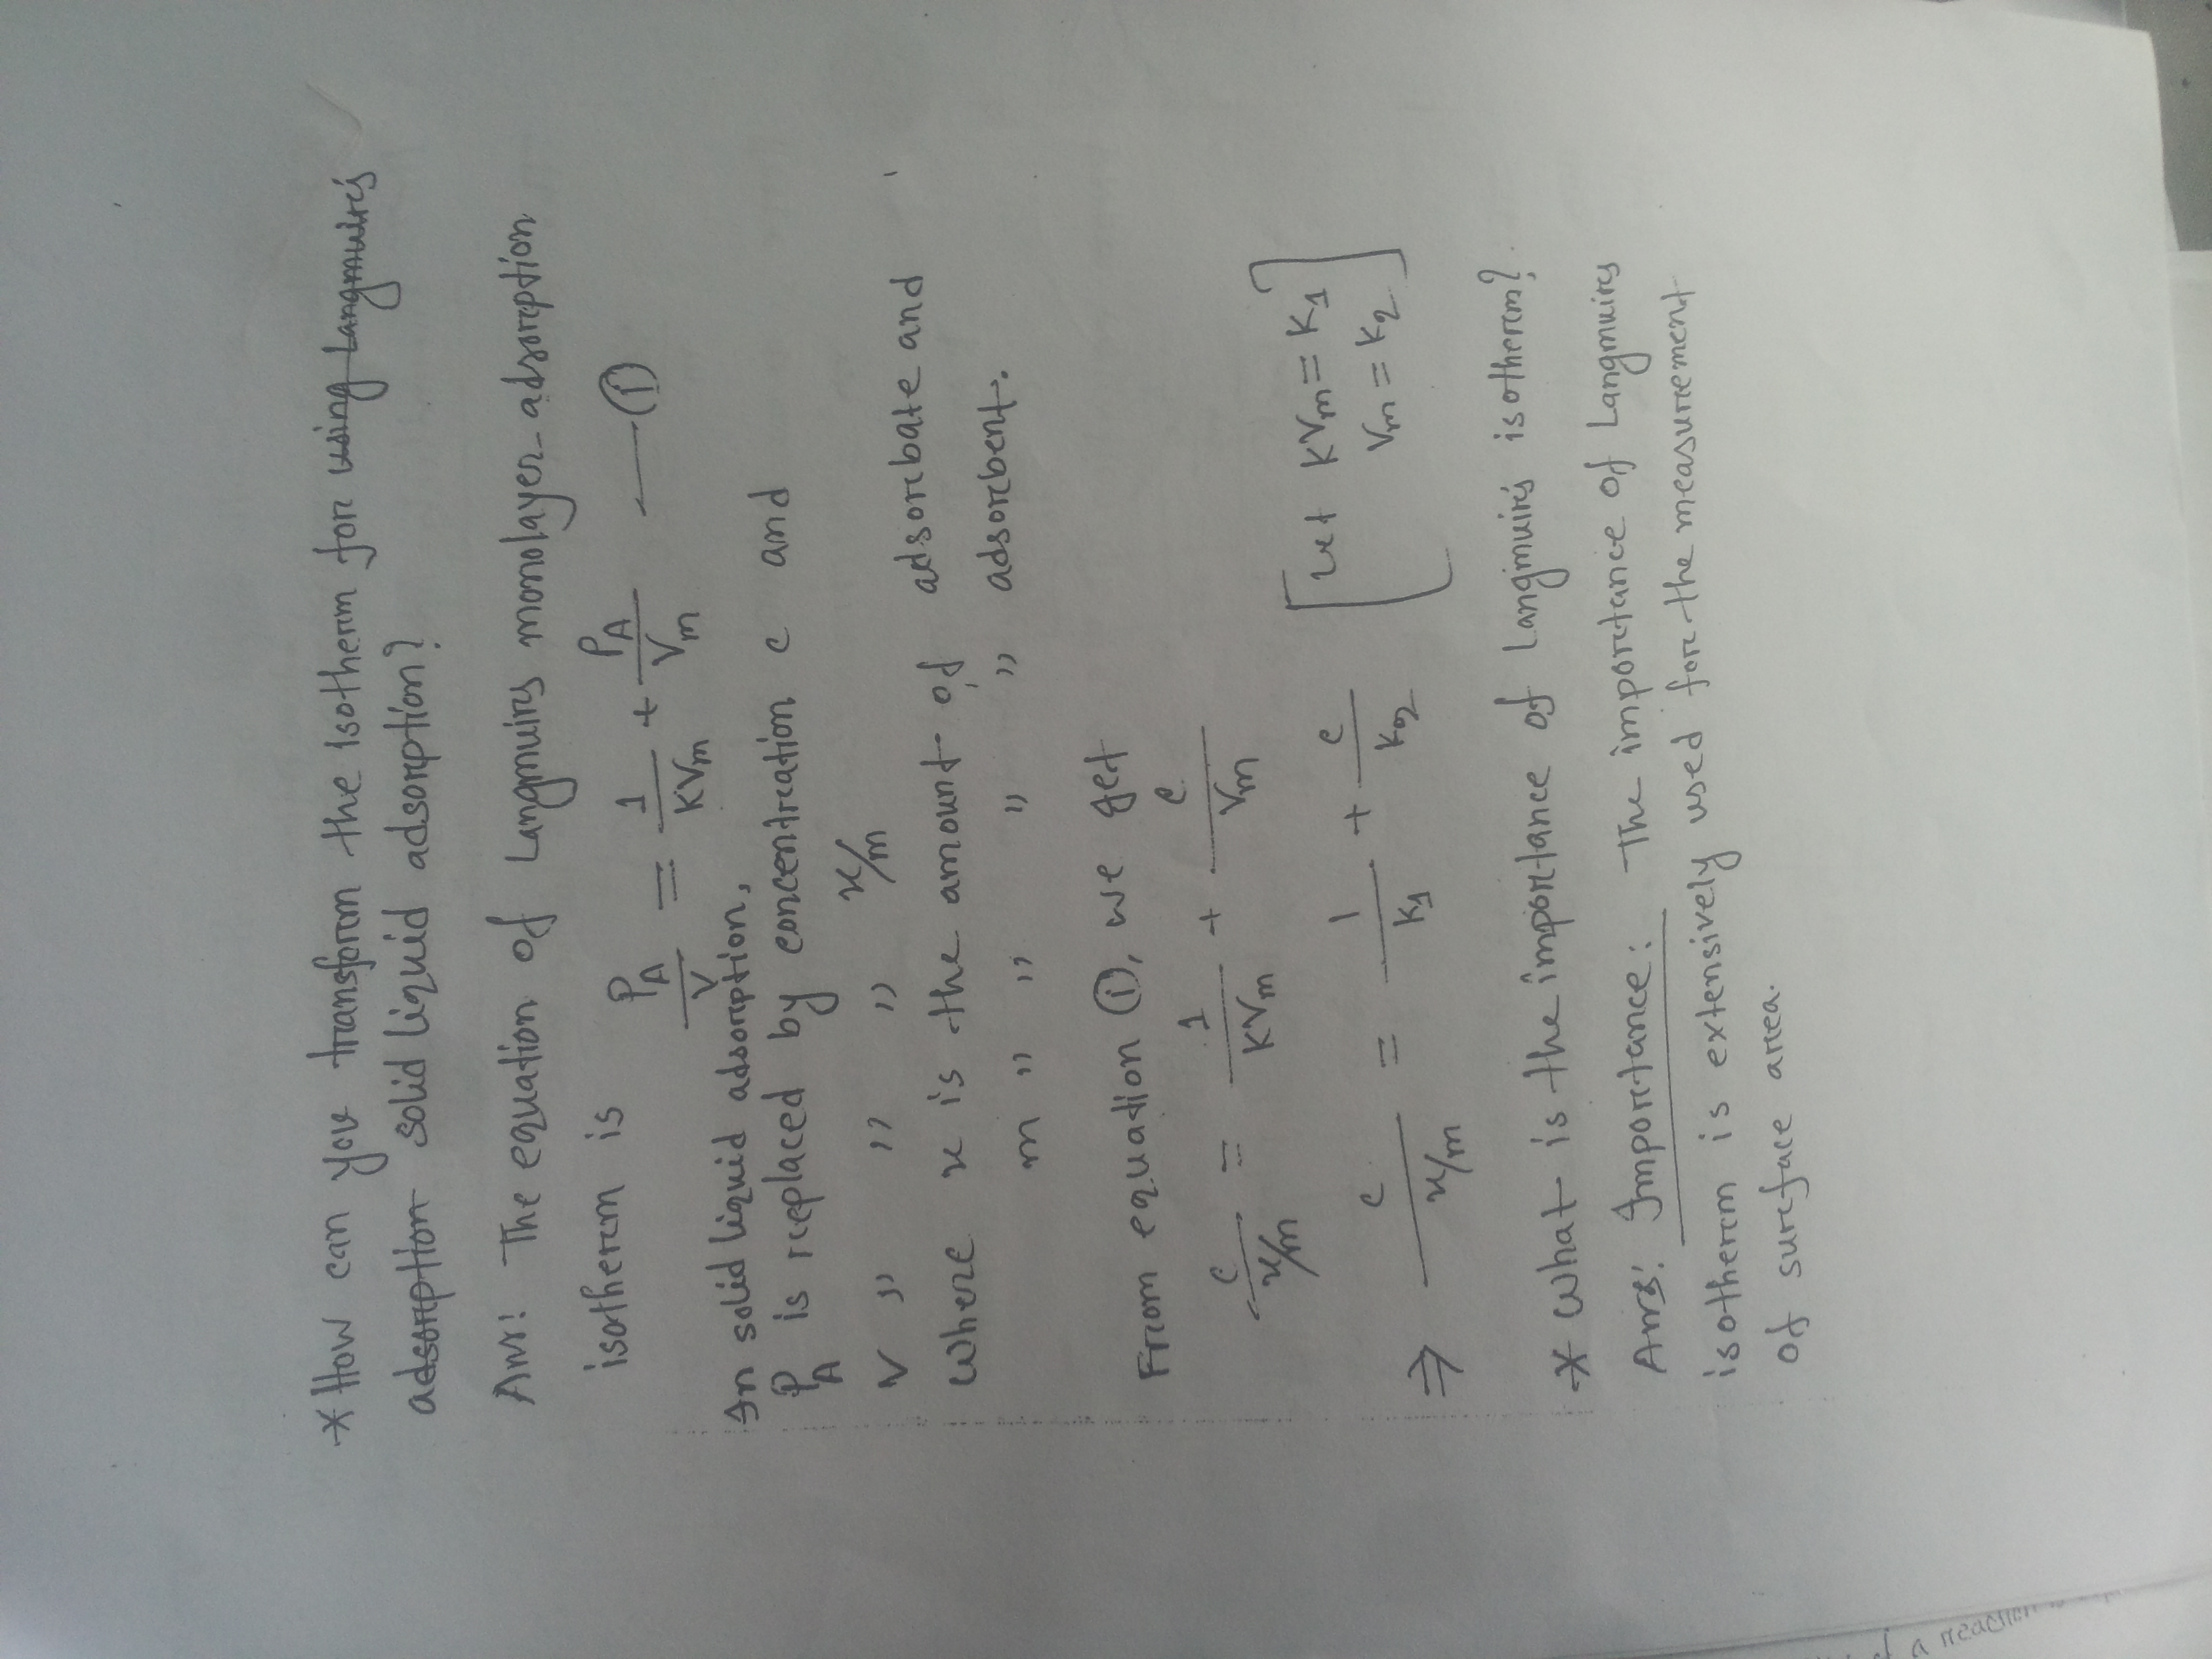 * How can you transform the isotherm for using Langmuir's
adsorption solid liquid adsorption?
Ans: The equation of Langmuirs monolayer adsorption
isotherm is
P_A/V = 1/KV_m + P_A/V_m —— ①
In solid liquid adsorption,
P_A is replaced by concentration c and
V " " " x/m
Where x is the amount of adsorbate and
m " " " " adsorbent.
From equation ①, we get
c/(x/m) = 1/KV_m + c/V_m
⇒ c/(x/m) = 1/K_1 + c/K_2 [Let KV_m = K_1
V_m = K_2]
* What is the importance of Langmuir's isotherm?
Ans: Importance: The importance of Langmuirs
isotherm is extensively used for the measurement
of surface area.
of a reaction